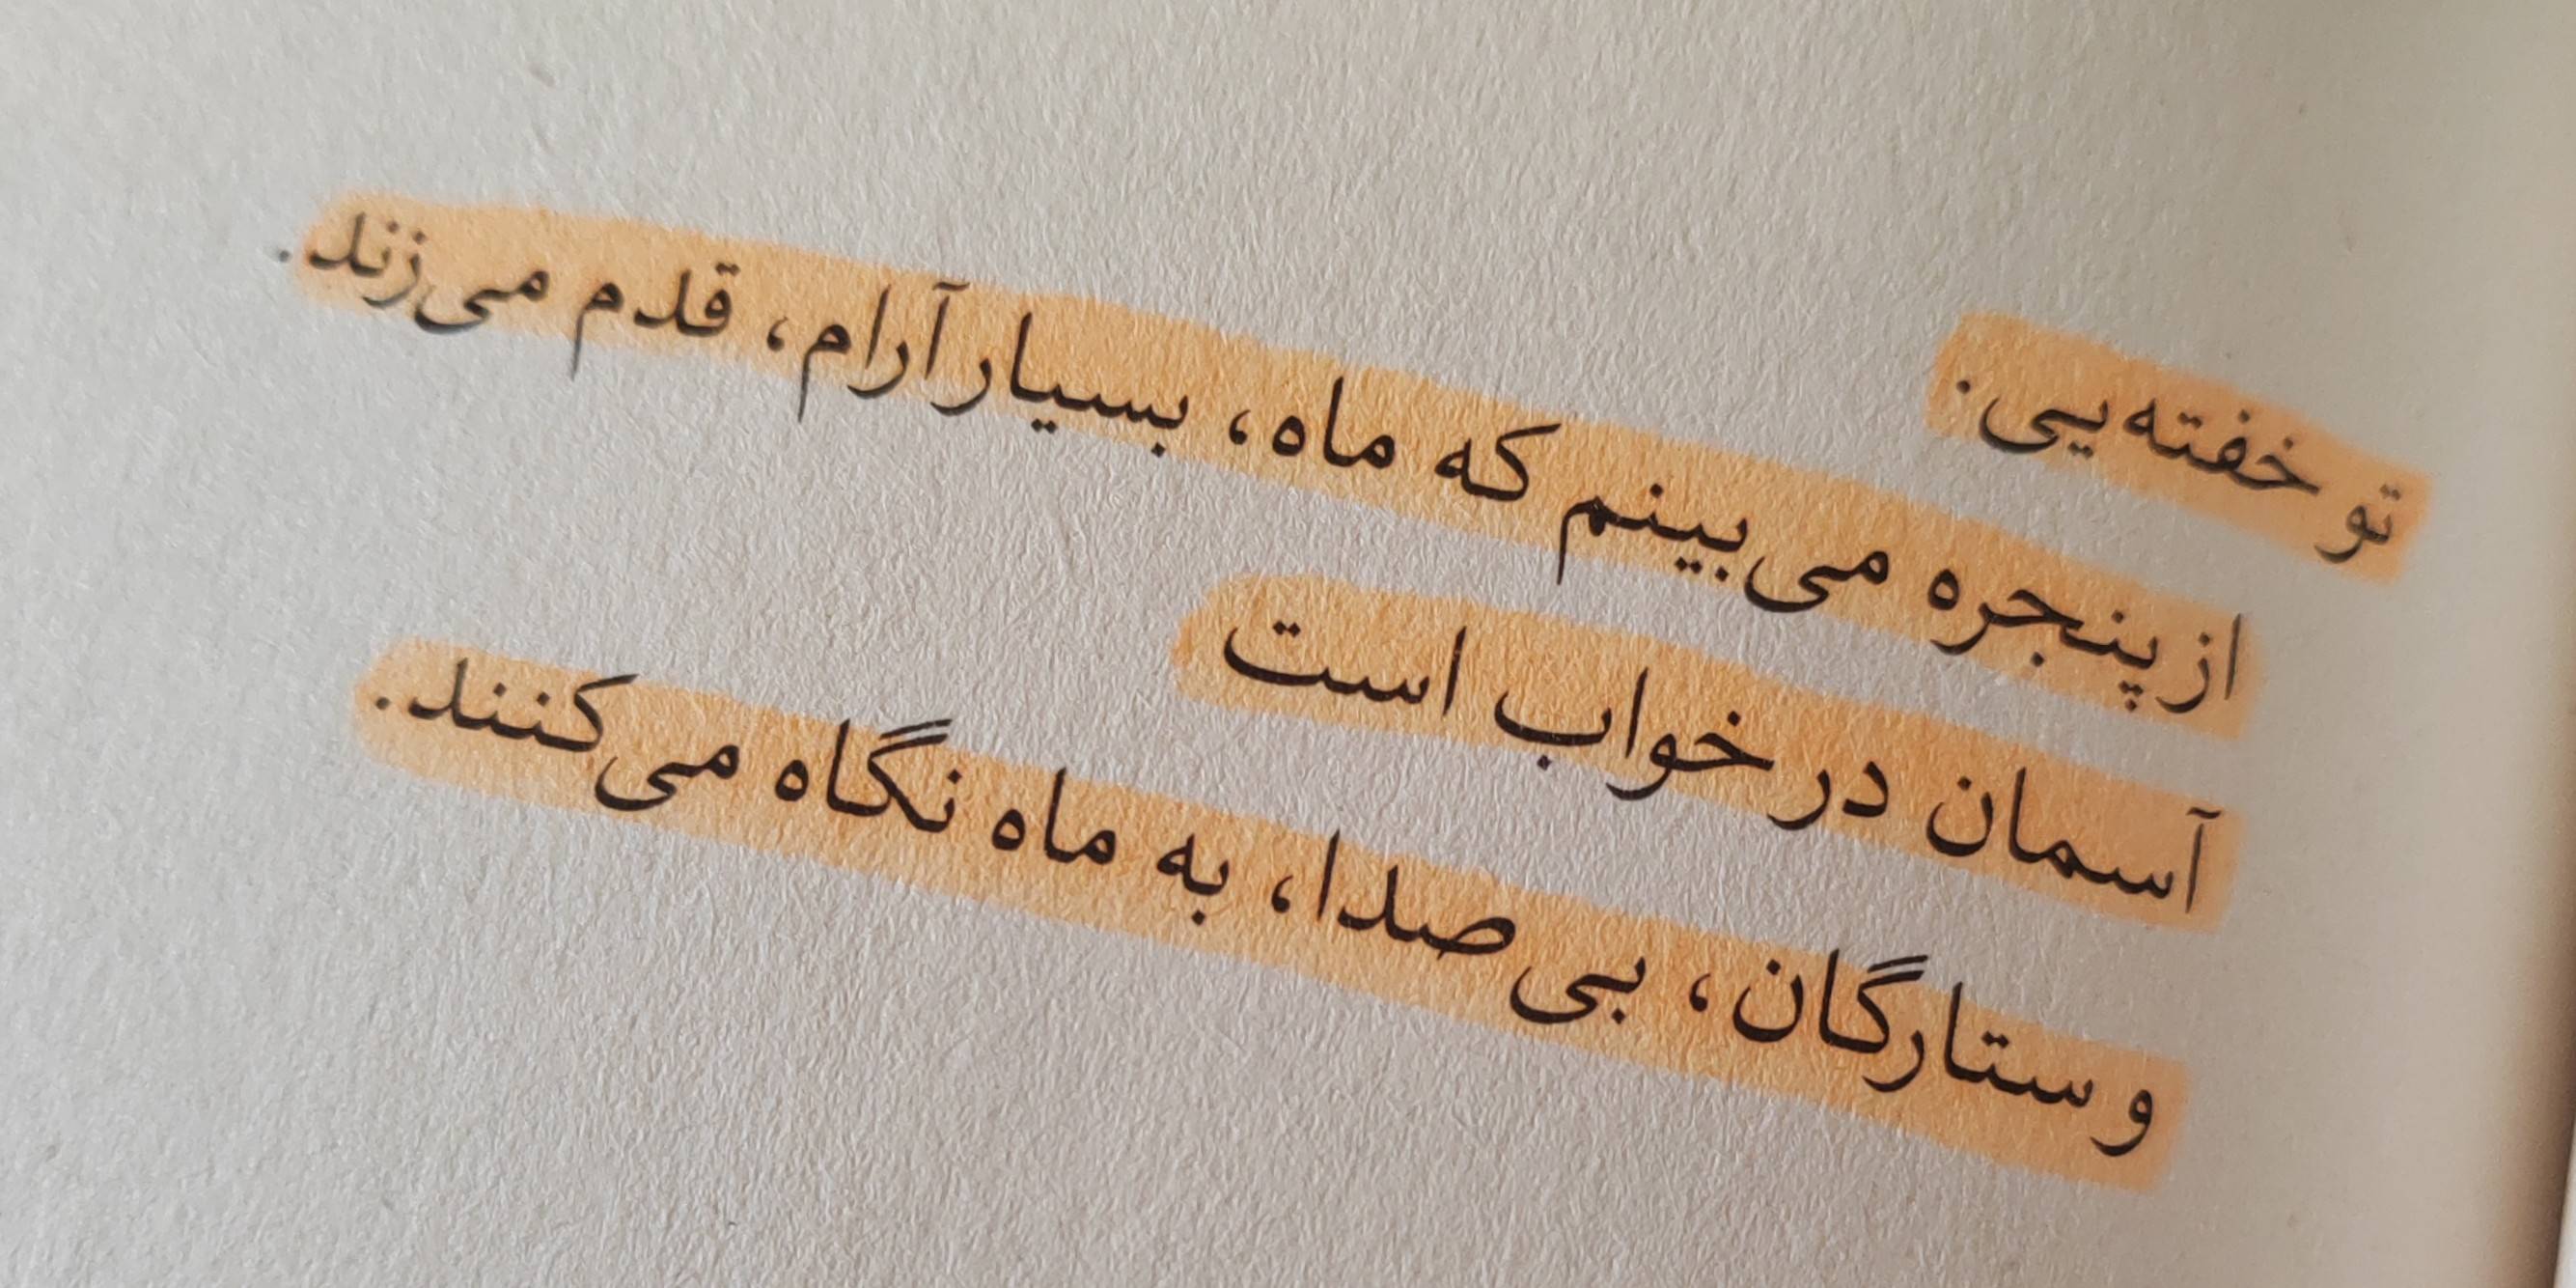 تو خفته‌یی.
از پنجره می‌بینم که ماه، بسیار آرام، قدم می‌زند.
آسمان در خواب است
و ستارگان، بی‌صدا، به ماه نگاه می‌کنند.